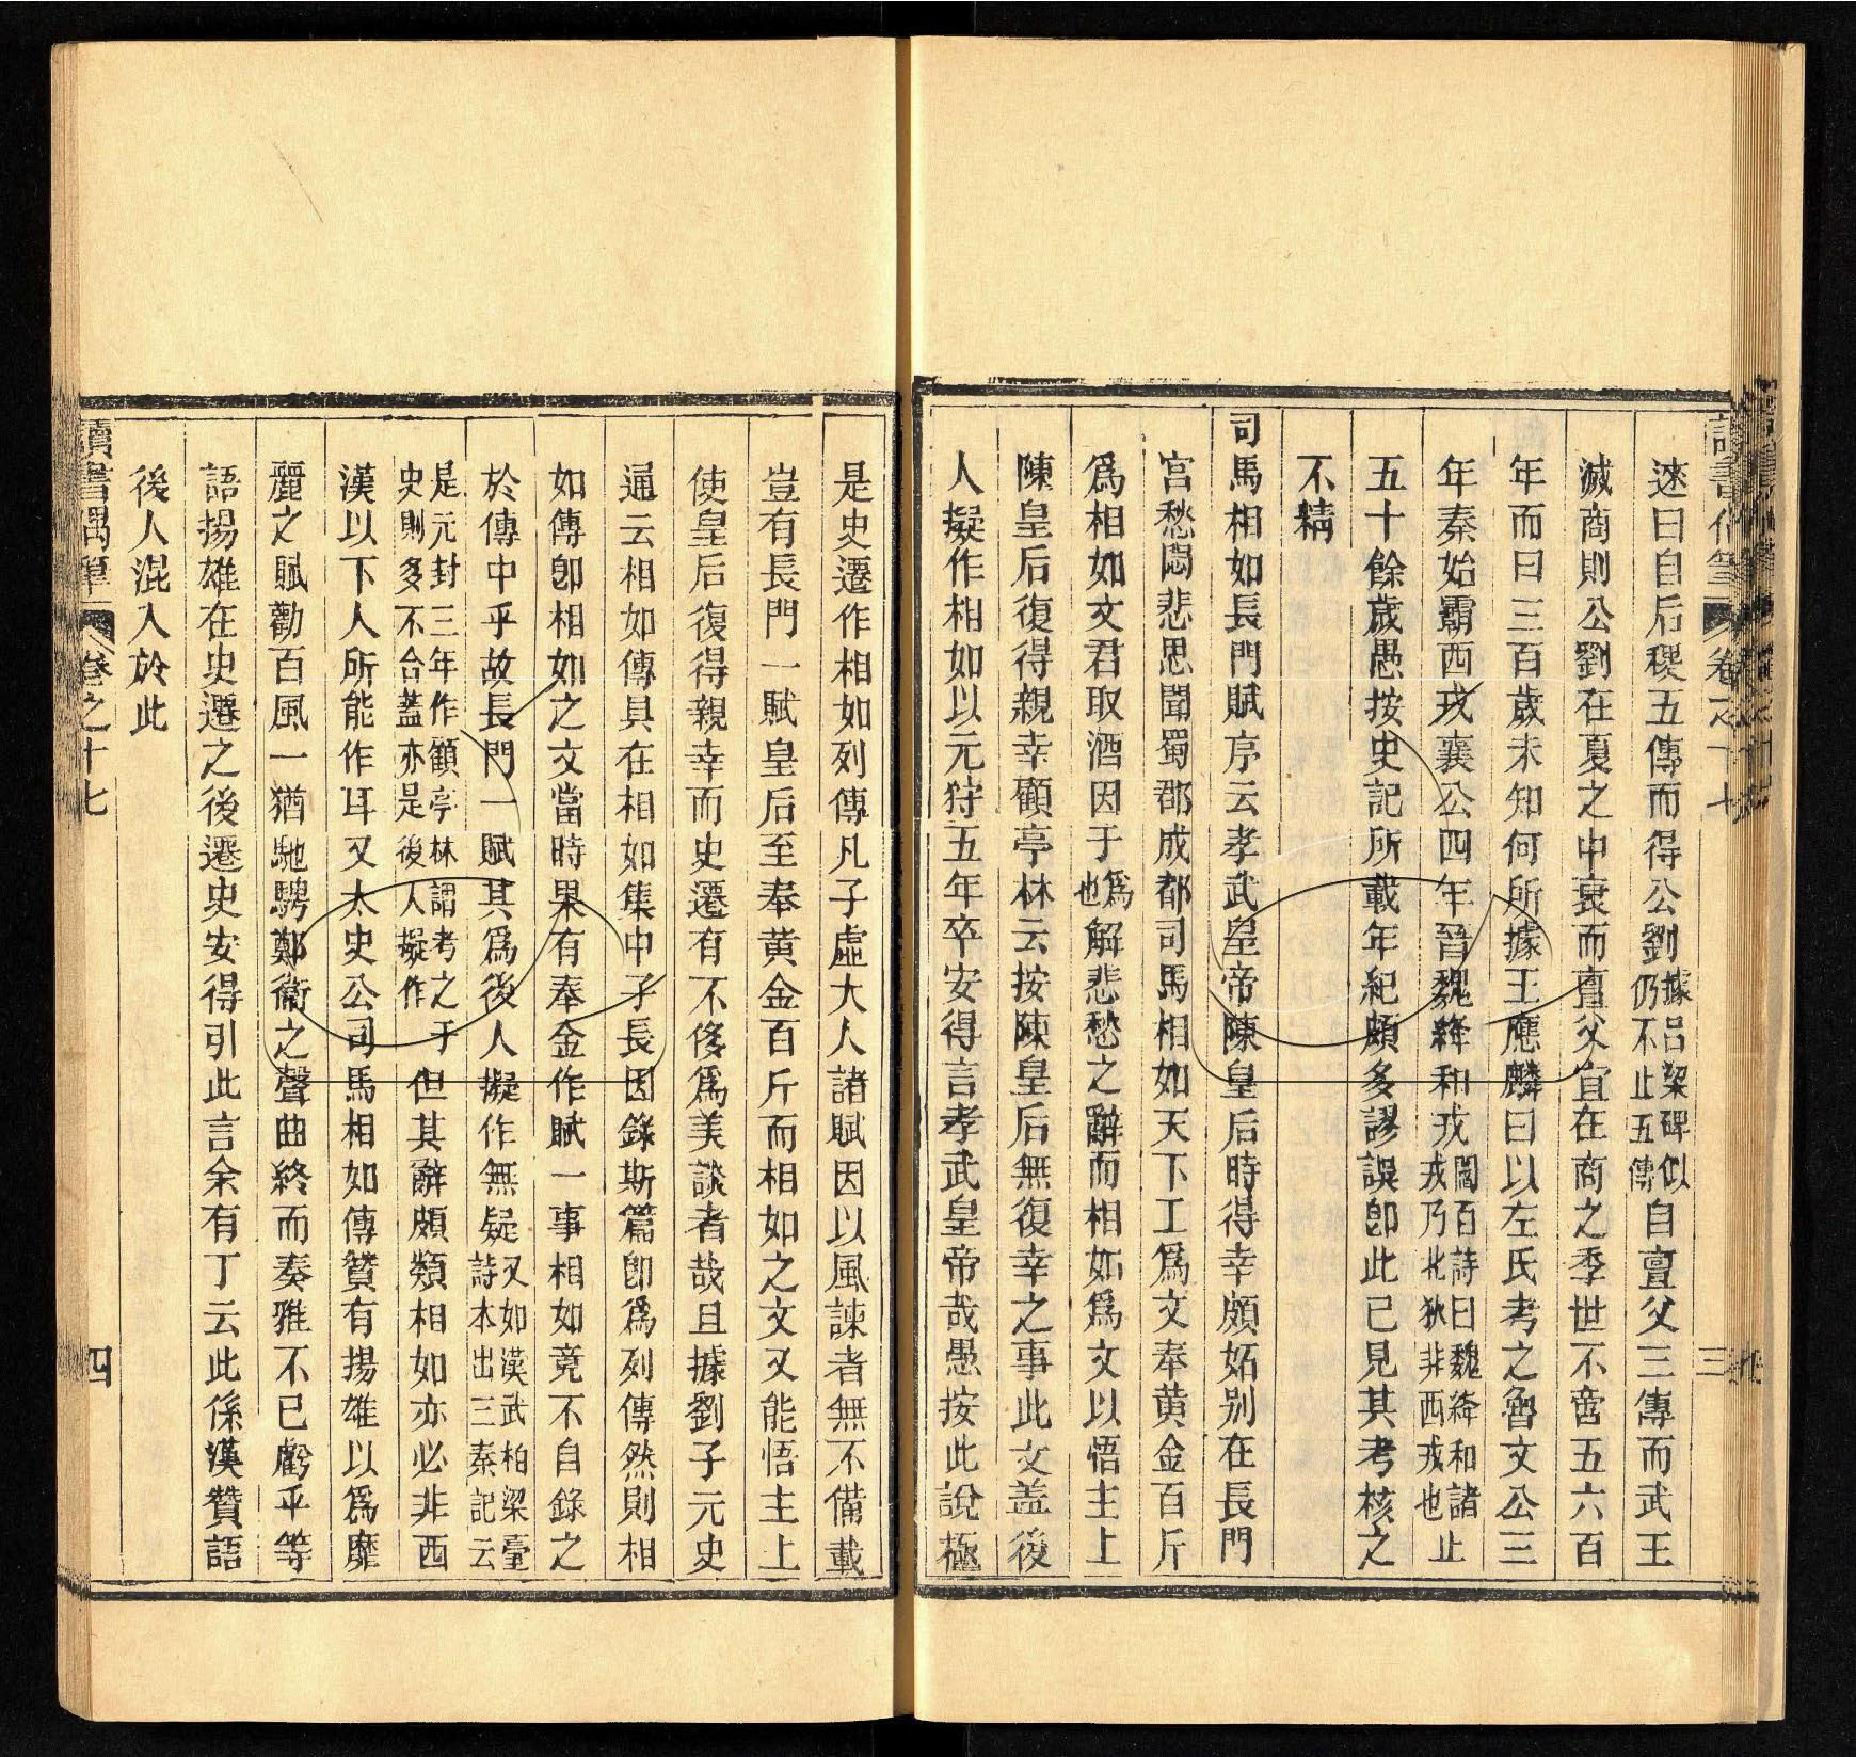 逨曰自后稷五傳而得公劉據呂梁碑似仍不止五傳自亶父三傳而武王
滅商則公劉在夏之中衰而亶父宜在商之季世不啻五六百
年而曰三百歲未知何所據王應麟曰以左氏考之魯文公三
年秦始霸西戎襄公四年晉魏絳和戎閻百詩曰魏絳和諸戎乃北狄非西戎也止
五十餘歲愚按史記所載年紀頗多謬誤卽此已見其考核之
不精
司馬相如長門賦序云孝武皇帝陳皇后時得幸頗妬别在長門
宮愁悶悲思聞蜀郡成都司馬相如天下工爲文奉黄金百斤
爲相如文君取酒因于爲也解悲愁之辭而相如爲文以悟主上
陳皇后復得親幸顧亭林云按陳皇后無復幸之事此文蓋後
人擬作相如以元狩五年卒安得言孝武皇帝哉愚按此說極
是史遷作相如列傳凡子虛大人諸賦因以風諫者無不備載
豈有長門一賦皇后至奉黄金百斤而相如之文又能悟主上
使皇后復得親幸而史遷有不侈爲美談者哉且據劉子元史
通云相如傳具在相如集中子長因錄斯篇卽爲列傳然則相
如傳卽相如之文當時果有奉金作賦一事相如竟不自錄之
於傳中乎故長門一賦其爲後人擬作無疑又如漢武柏梁臺詩本出三秦記云
是元封三年作顧亭林謂考之于史則多不合蓋亦是後人擬作但其辭頗類相如亦必非西
漢以下人所能作耳又太史公司馬相如傳贊有揚雄以爲靡
麗之賦勸百風一猶馳騁鄭衞之聲曲終而奏雅不已虧乎等
語揚雄在史遷之後遷史安得引此言余有丁云此係漢贊語
後人混入於此
讀書偶筆 卷之十七 四